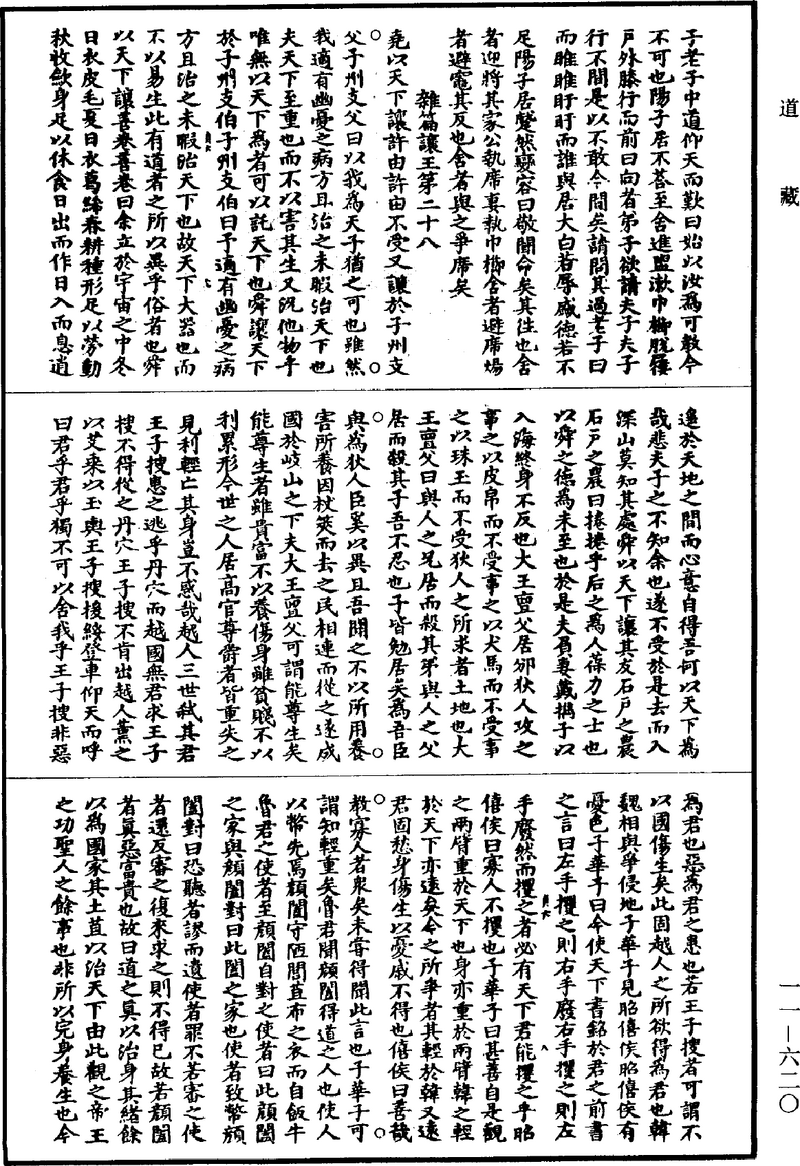 道藏
子老子中道仰天而歎曰始以汝為可教今
不可也陽子居不荅至舍進盥漱巾櫛脫屨
戶外膝行而前曰向者弟子欲請夫子夫子
行不間是以不敢今間矣請問其過老子曰
而睢睢盱盱而誰與居大白若辱盛德若不
足陽子居蹵然變容曰敬聞命矣其往也舍
者迎將其家公執席妻執巾櫛舍者避席煬
者避竈其反也舍者與之爭席矣
雜篇讓王第二十八
堯以天下讓許由許由不受又讓於子州支
父子州支父曰以我為天子猶之可也雖然
我適有幽憂之病方且治之未暇治天下也
夫天下至重也而不以害其生又況他物乎
唯無以天下為者可以託天下也舜讓天下
於子州支伯子州支伯曰予適有幽憂之病
方且治之未暇治天下也故天下大器也而
不以易生此有道者之所以異乎俗者也舜
以天下讓善卷善卷曰余立於宇宙之中冬
日衣皮毛夏日衣葛絺春耕種形足以勞動
秋收斂身足以休食日出而作日入而息逍
遙於天地之間而心意自得吾何以天下為
哉悲夫子之不知余也遂不受於是去而入
深山莫知其處舜以天下讓其友石戶之農
石戶之農曰捲捲乎后之為人葆力之士也
以舜之德為未至也於是夫負妻戴攜子以
入海終身不反也大王亶父居邠狄人攻之
事之以皮帛而不受事之以犬馬而不受事
之以珠玉而不受狄人之所求者土地也大
王亶父曰與人之兄居而殺其弟與人之父
居而殺其子吾不忍也子皆勉居矣為吾臣
與為狄人臣奚以異且吾聞之不以所用養
害所養因杖筴而去之民相連而從之遂成
國於岐山之下夫大王亶父可謂能尊生矣
能尊生者雖貴富不以養傷身雖貧賤不以
利累形今世之人居高官尊爵者皆重失之
見利輕亡其身豈不惑哉越人三世弒其君
王子搜患之逃乎丹穴而越國無君求王子
搜不得從之丹穴王子搜不肯出越人薰之
以艾乘以玉輿王子搜援綏登車仰天而呼
曰君乎君乎獨不可以舍我乎王子搜非惡
為君也惡為君之患也若王子搜者可謂不
以國傷生矣此固越人之所欲得為君也韓
魏相與爭侵地子華子見昭僖侯昭僖侯有
憂色子華子曰今使天下書銘於君之前書
之言曰左手攫之則右手廢右手攫之則左
手廢然而攫之者必有天下君能攫之乎昭
僖侯曰寡人不攫也子華子曰甚善自是觀
之兩臂重於天下也身亦重於兩臂韓之輕
於天下亦遠矣今之所爭者其輕於韓又遠
君固愁身傷生以憂戚不得也僖侯曰善哉
教寡人者眾矣未嘗得聞此言也子華子可
謂知輕重矣魯君聞顏闔得道之人也使人
以幣先焉顏闔守陋閭苴布之衣而自飯牛
魯君之使者至顏闔自對之使者曰此顏闔
之家與顏闔對曰此闔之家也使者致幣顏
闔對曰恐聽者謬而遺使者罪不若審之使
者還反審之復來求之則不得已故若顏闔
者真惡富貴也故曰道之真以治身其緒餘
以為國家其土苴以治天下由此觀之帝王
之功聖人之餘事也非所以完身養生也今
一一—六二〇